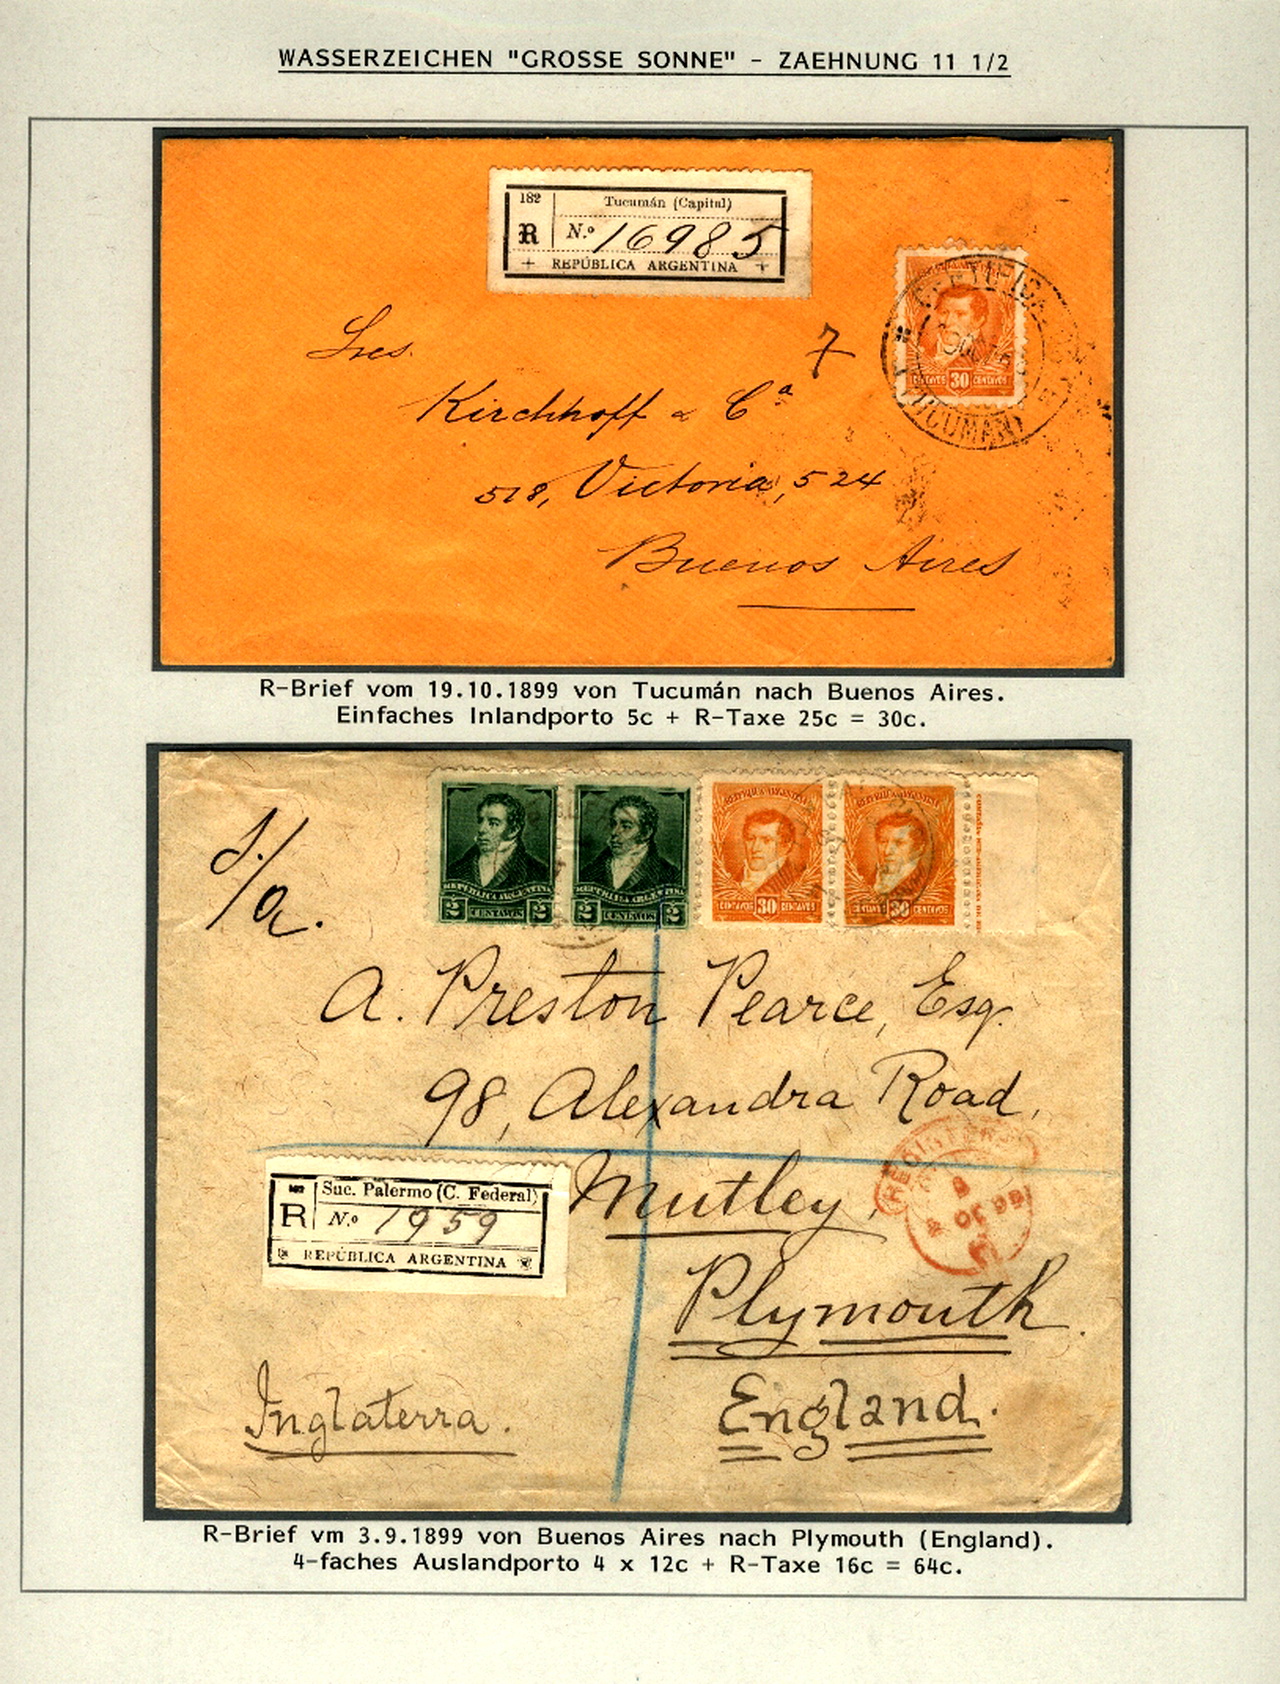 WASSERZEICHEN "GROSSE SONNE" - ZAEHNUNG 11 1/2
182
Tucumán (Capital)
R
N.º 16985
+ REPÚBLICA ARGENTINA +
Sres.
7
CENTAVOS 30 CENTAVOS
TUCUMAN
Kirchhoff & Cª
518, Victoria, 524
Buenos Aires
R-Brief vom 19.10.1899 von Tucumán nach Buenos Aires.
Einfaches Inlandporto 5c + R-Taxe 25c = 30c.
S./a.
REPÚBLICA ARGENTINA
2 CENTAVOS 2
REPÚBLICA ARGENTINA
2 CENTAVOS 2
REPUBLICA ARGENTINA
CENTAVOS 30 CENTAVOS
REPUBLICA ARGENTINA
CENTAVOS 30 CENTAVOS
A. Preston Pearce, Esq.
98, Alexandra Road,
Mutley,
Plymouth.
England.
Inglaterra.
182
Suc. Palermo (C. Federal)
R
N.º 1959
REPÚBLICA ARGENTINA
REGISTERED
2 OC 99
R-Brief vm 3.9.1899 von Buenos Aires nach Plymouth (England).
4-faches Auslandporto 4 x 12c + R-Taxe 16c = 64c.